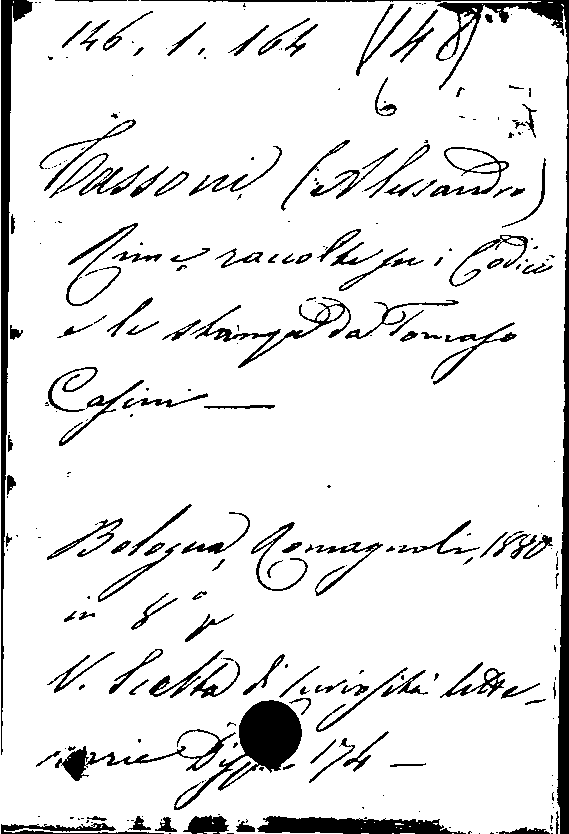 146. 1. 164 (148)
6
Tassoni (Alessandro)
Rime, raccolte su i Codici
e le stampe da Tomaso
Casini —
Bologna, Romagnoli, 1880
in 8°
V. Scelta di curiosità lette-
rarie Disp. 174 —